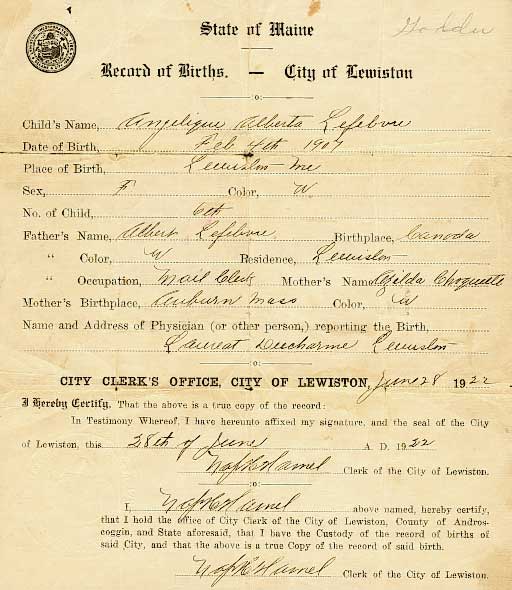 State of Maine
Record of Births. — City of Lewiston
Child's Name, Angelique Alberta Lefebvre
Date of Birth, Feb 4th 1907
Place of Birth, Lewiston Me
Sex, F Color, W
No. of Child, 6th
Father's Name, Albert Lefebvre Birthplace, Canada
" Color, W Residence, Lewiston
" Occupation, Mail Clerk Mother's Name, Azilda Choquette
Mother's Birthplace, Auburn Mass Color, W
Name and Address of Physician (or other person,) reporting the Birth,
Laureat Ducharme Lewiston
CITY CLERK'S OFFICE, CITY OF LEWISTON, June 28 1922
I Hereby Certify. That the above is a true copy of the record:
In Testimony Whereof, I have hereunto affixed my signature, and the seal of the City
of Lewiston, this 28th of June A. D. 1922
Hamel Clerk of the City of Lewiston.
I, Hamel above named, hereby certify,
that I hold the office of City Clerk of the City of Lewiston, County of Andros-
coggin, and State aforesaid, that I have the Custody of the record of births of
said City, and that the above is a true Copy of the record of said birth.
Hamel Clerk of the City of Lewiston.